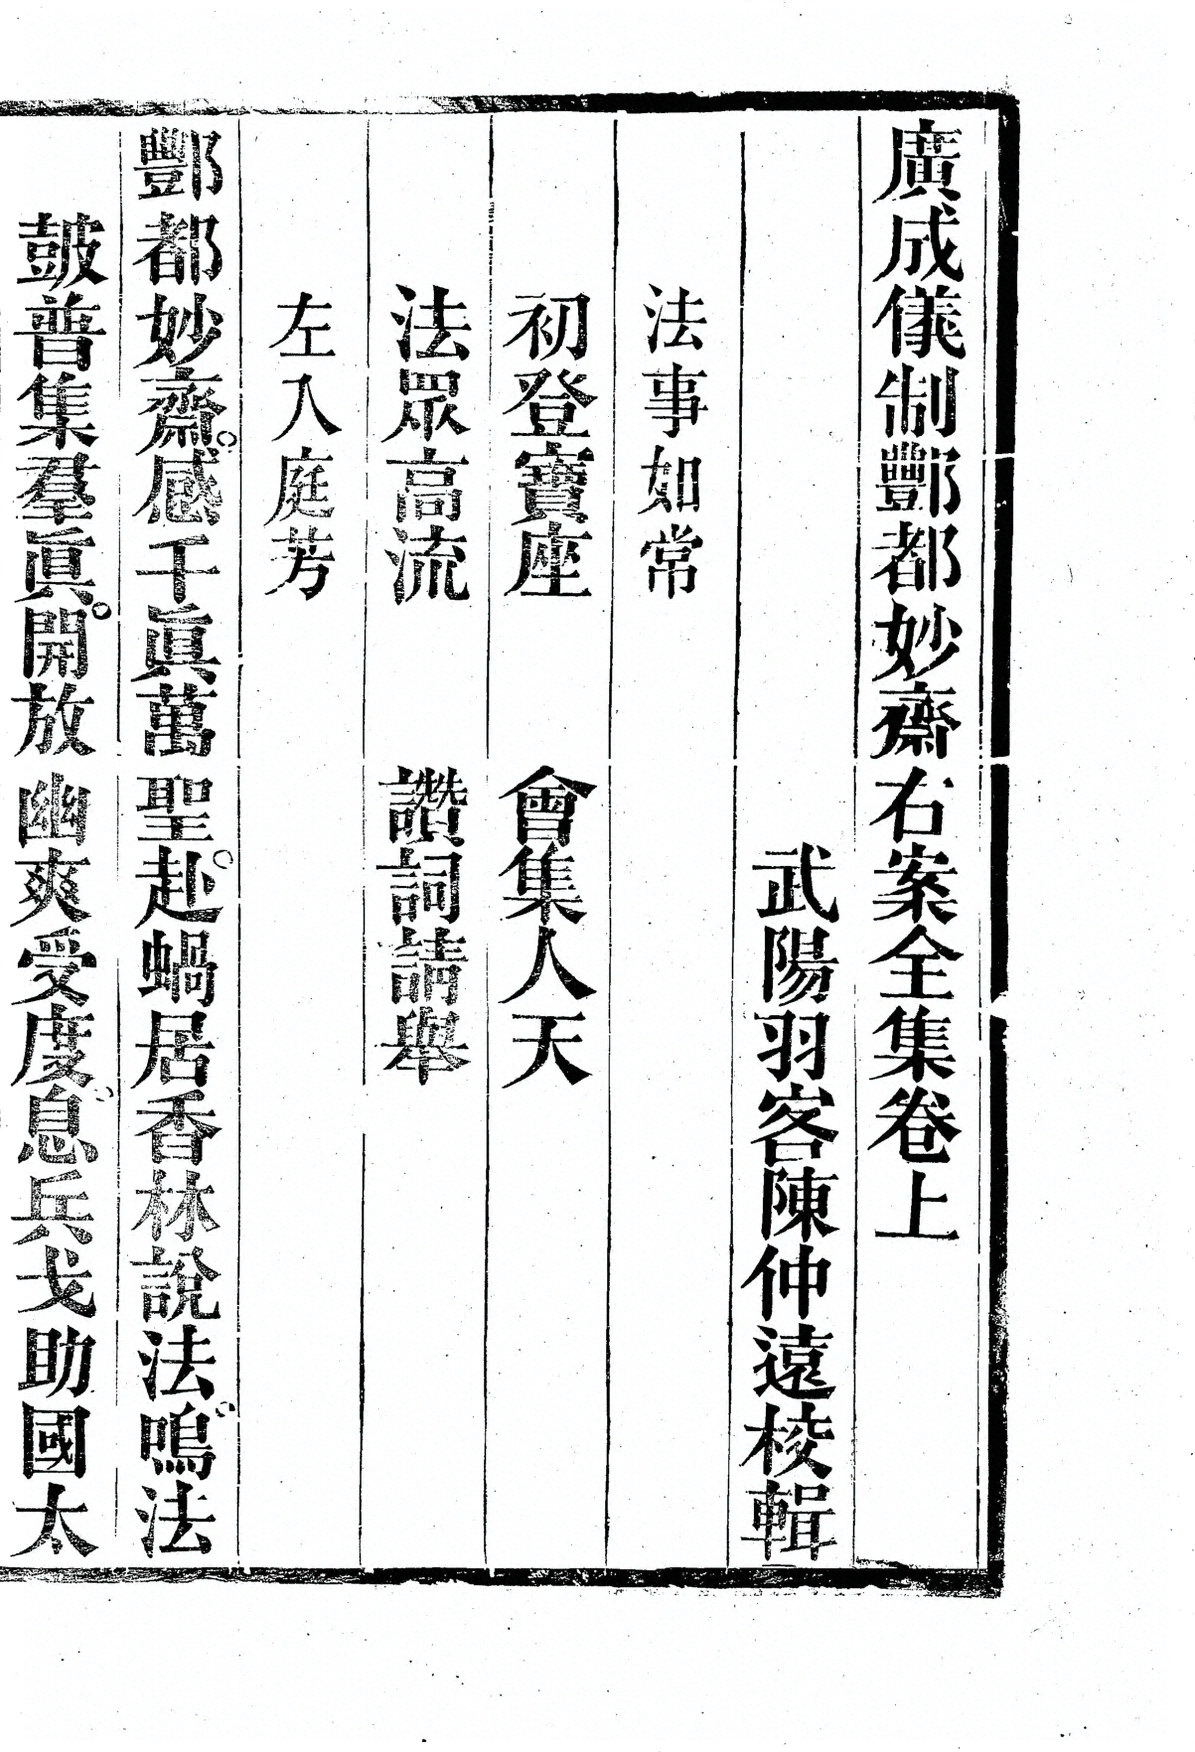 廣成儀制酆都妙齋右案全集卷上
武陽羽客陳仲遠校輯
法事如常
初登寶座　會集人天
法眾高流　讚詞請舉
左入庭芳
酆都妙齋感千眞萬聖赴蝸居香林說法鳴法
皷普集羣眞開放幽爽受度息兵戈助國太